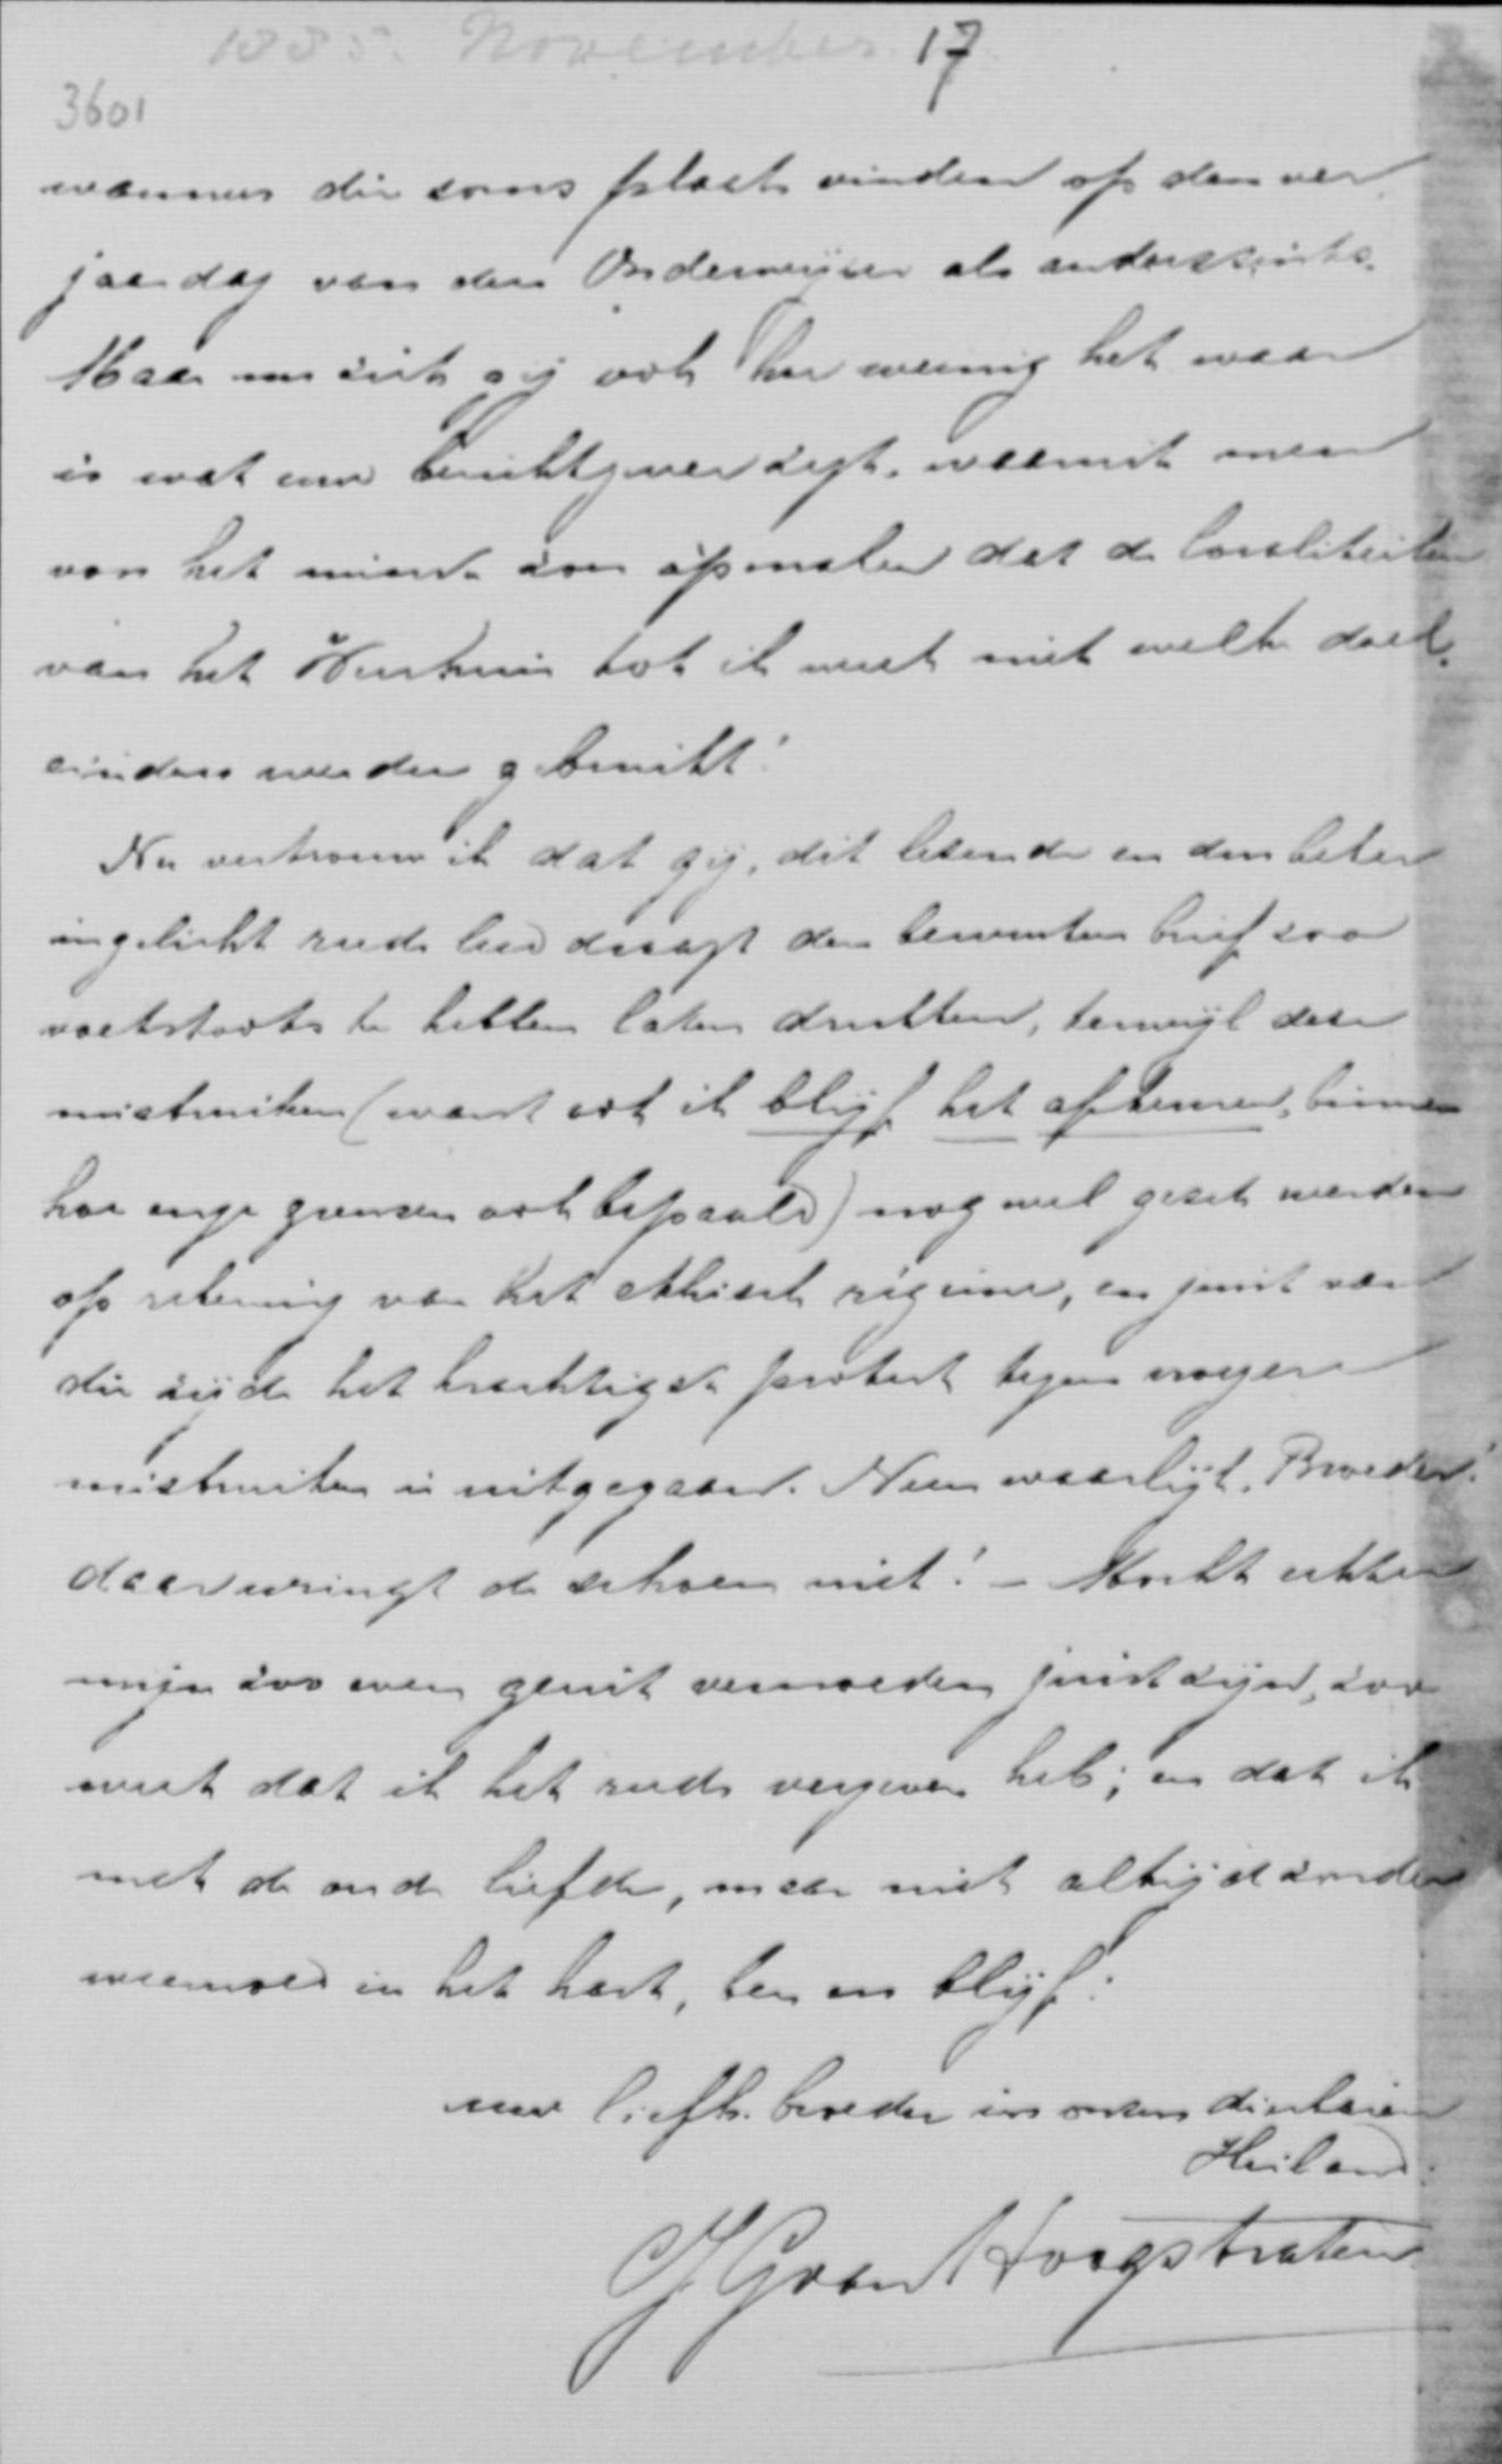 1885. November 17
3601
wanneer die soms plaats vinden op den ver
jaardag van den Onderwijzer als anderszints.
Maar nu ziet gij ook hoe weinig het waar
is wat uw berichtgever zegt, waaruit men
van het minst zou opmaken dat de localiteiten
van het Weeshuis tot ik weet niet welke doel
einden werden gebruikt!
Nu vertrouw ik dat gij, dit lezende en dus beter
ingelicht reeds leed draagt den bewusten brief zoo
voetstoots te hebben laten drukken, terwijl deze
misbruiken (want ook ik blijf het afkeuren, binnen
hoe enge grenzen ook bepaald) nog wel gezet werden
op rekening van het ethisch régime, en juist van
die zijde het krachtigste protest tegen vroegere
misbruiken is uitgegaan. Neen waarlijk, Broeder!
daar wringt de schoen niet! – Mocht echter
mijn zoo even geuit vermoeden juist zijn, zoo
weet dat ik het reeds vergeven heb; en dat ik
met de oude liefde, maar niet altijd zonder
weemoed in het hart, ben en blijf:
uw liefh. broeder in onzen dierbaren
Heiland.
J G van Hoogstraten